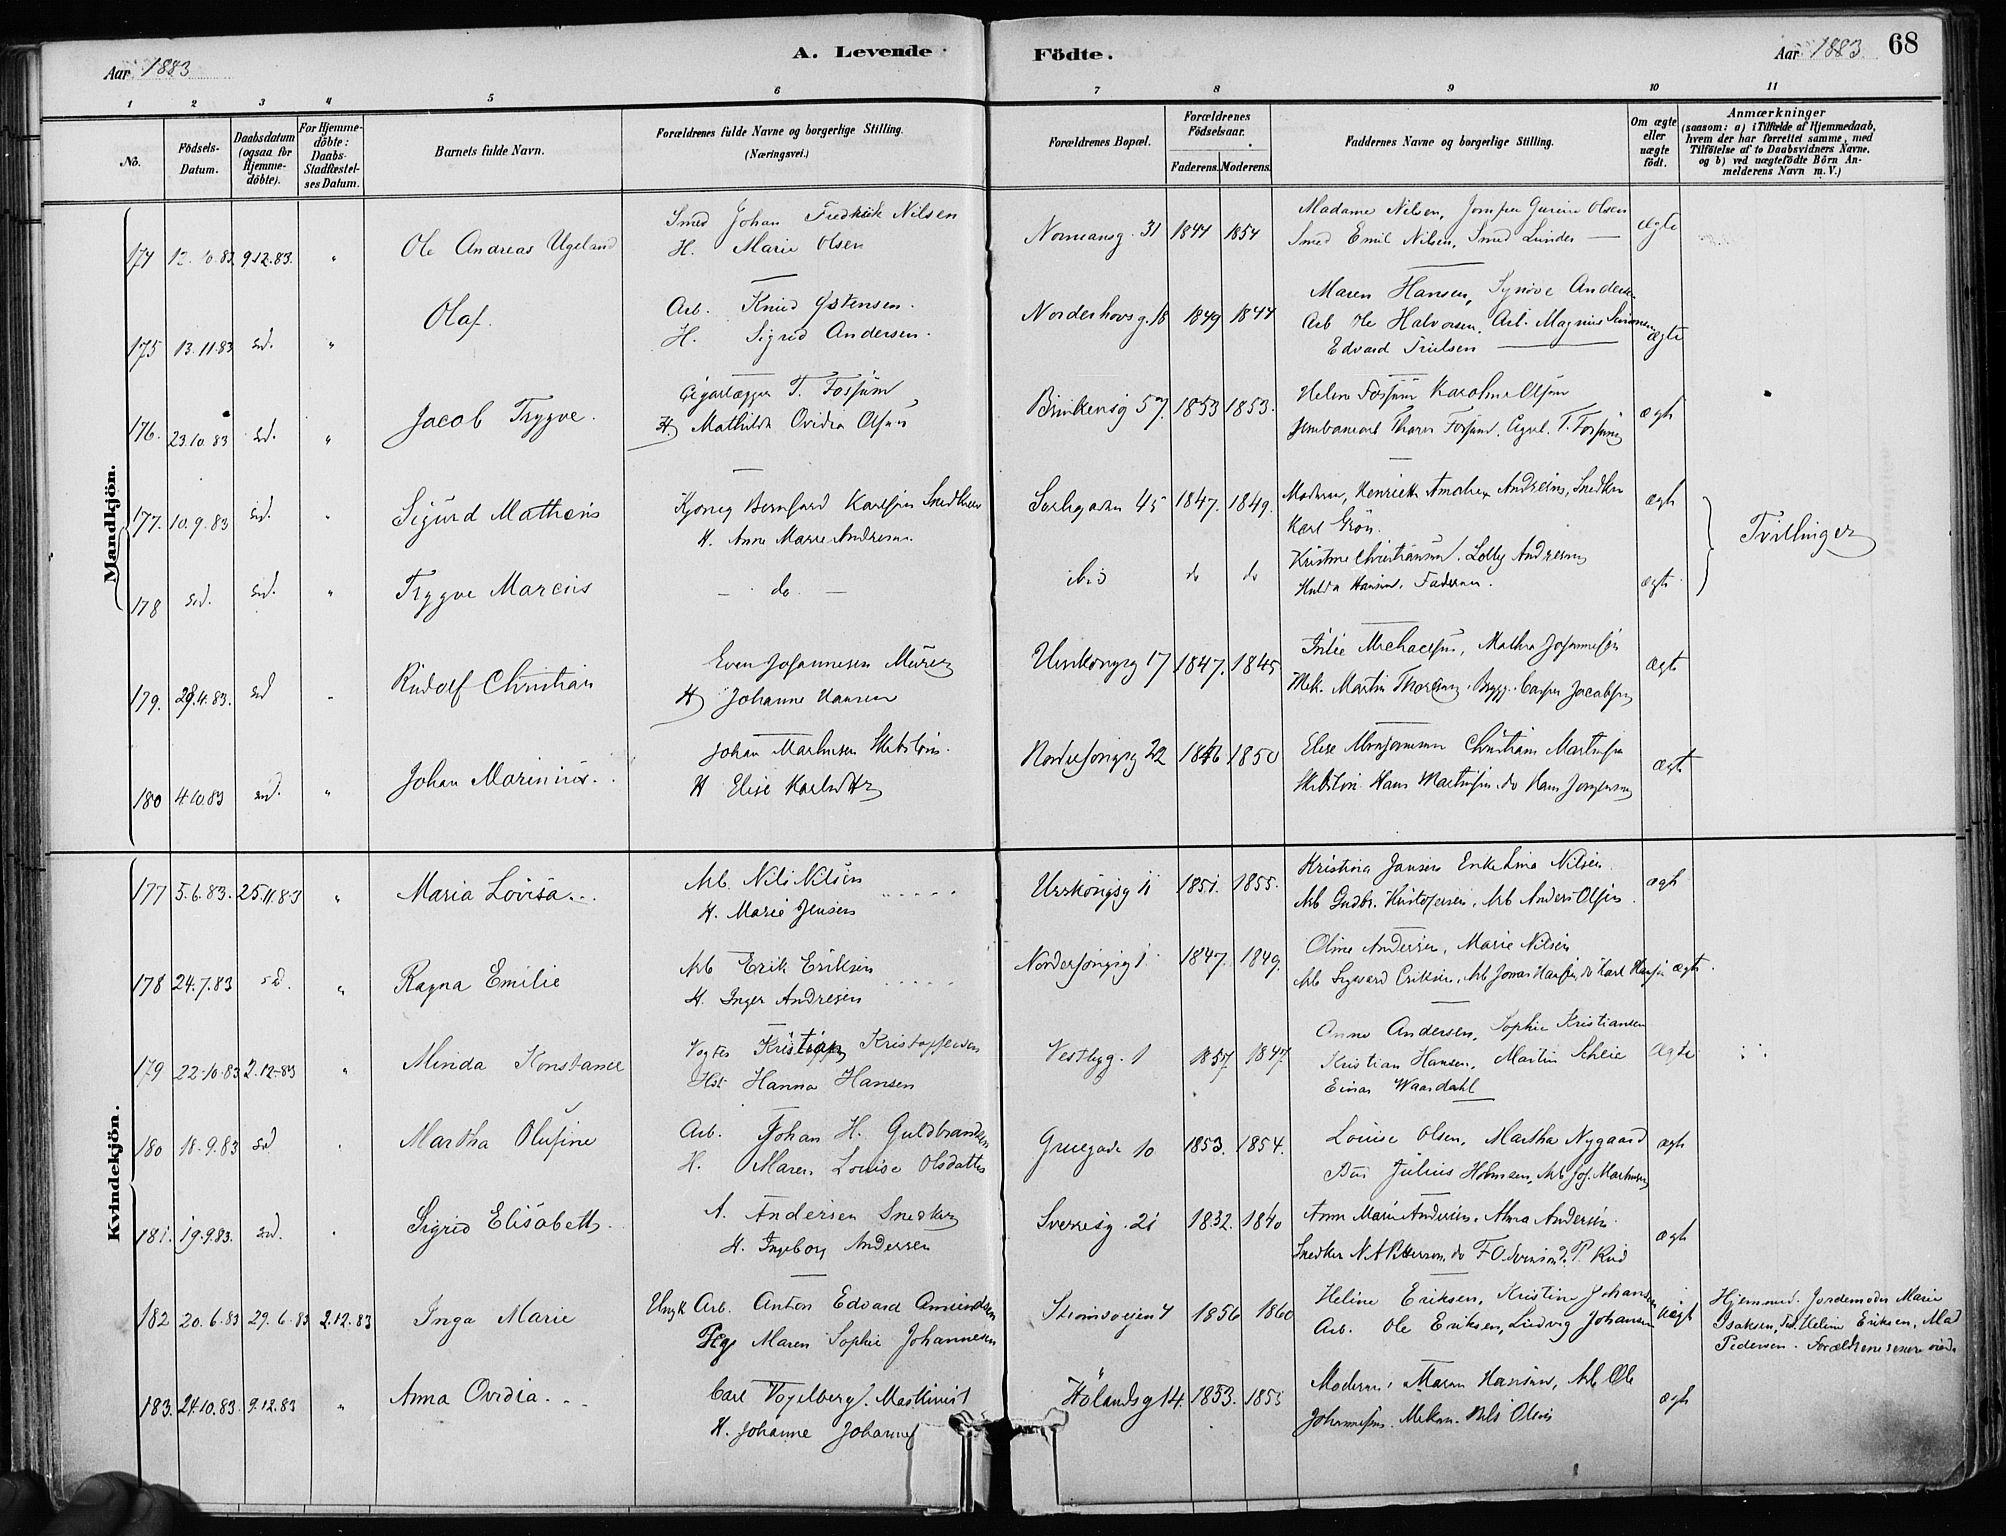 Aar 1883
A. Levende
Födte.
Aar 1883.
68
1 2 3 4 5 6 7 8 9 10 11
No.
Födsels-
Datum.
Daabsdatum
(ogsaa for
Hjemme-
döbte).
For Hjemme-
döbte:
Daabs-
Stadfæstel-
ses Datum.
Barnets fulde Navn.
Forældrenes fulde Navne og borgerlige Stilling.
(Næringsvei.)
Forældrenes Bopæl.
Forældrenes
Födselsaar.
Faderens. Moderens.
Faddernes Navne og borgerlige Stilling.
Om ægte
eller
uægte
födt.
Anmærkninger
(saasom: a) i Tilfælde af Hjemmedaab,
hvem der har forrettet samme, med
Tilföielse af to Daabsvidners Navne,
og b) ved uægtefödte Börn An-
melderens Navn m. V.)
Mandkjön.
174 12.10.83 9.12.83. " Ole Andreas Ugeland
Smed Johan Fredrik Nilsen
H. Marie Olsen
31 1844 1854
Madame Nilsen, Olsen
Smed Emil Nilsen, Smed Lunder
ægte
175 13.11.83 sd. " Olaf.
Arb. Knud Østensen.
H. Sigrid Andersen.
Nordenhovsg. 18 1849 1844
Maren Hansen, Synöve Anders
Arb Ole Halvorsen, Arb. Magnus
Edvard Trulsen
ægte
176. 23.10.83 sd. " Jacob Trygve.
T. Fossum
H. Mathilda Ovidia Olsen
57. 1853 1853.
Helene Fossum Karoline Olsen
Fossum, T. Fossum
ægt
177. 10.9.83 sd. " Sigurd Matheus
Bernhard Karlsen Snedker
H. Anne Marie Andresen
45 1847. 1849.
Moderen, Henriette Andresen, Snedker
Karl Grön.
ægt
Tvillinger
178 sd. sd. " Trygve Marcus
do
ibid do do
Kristine Christiansen. Andresen
Hulda Hansen, Faderen.
ægte
179. 29.4.83. sd Rudolf Christian
Even Johannesen Murer
H Johanne Hansen
Urskougsg 17 1847. 1845
Julie Michaelsen, Mathea Johannesen
Mek. Martin Brygg. Casper Jacobsen
ægt
180 4.10.83 sd. " Johan Marinius.
Johan Martinsen
H Elise
22 1846 1850
Elise Christiane Martinsen
Hans Martinsen do Hans Jörgensen
ægt
Kvindekjön.
177 5.6.83. 25.11.83 " Maria Lovisa
Arb. Nils Nilsen
H. Marie Jensen
Urskougsg 11 1851. 1855.
Kristina Jansen Enke Lina Nilsen.
Arb Gudbr. Kristofersen, Arb Anders Olsen
ægt
178 24.7.83 sd. " Ragna Emilie
Arb Erik Eriksen
H. Inger Andresen
1. 1847. 1849.
Oline Andersen, Marie Nilsen
Arb Sigvard Eriksen, Arb Jonas Hansen, do Karl Hansen
ægt.
179 22.10.83 2.12.83 " Minda Konstance
Vogter Kristian Kristoffersen
Hst. Hanna Hansen
Vestbyg. 1 1857 1847.
Anna Andersen, Sophie Kristiansen
Kristian Hansen, Martin Scheie
Einar Waardahl
Ægte
180 18.9.83 sd Martha Olufine
Arb. Johan H. Guldbrandsen
H. Maren Louise Olsdatter
Gruegade 10 1853. 1854.
Louise Olsen, Martha Nygaard
Julius Holmsen, Arb Joh. Martinsen
ægt
181. 19.9.83. sd. Sigrid Elisabeth.
A. Andersen Snedker
H. Ingeborg Andersen
Sverresg. 21 1832. 1840
Anne Marie Andersen, Alma Andersen.
Snedker N. A. Pettersen, do F. O. Svensen, P. Rud
ægt
182 20.6.83 29.6.83 2.12.83 Inga Marie
Ungk Arb. Anton Edvard Amundsen
Pige Maren Sophie Johannesen
Strömsveien 4 1856 1860
Heline Eriksen, Kristine Johansen
Arb. Ole Eriksen, Ludvig Johansen
uægt
Hjemmed. Jordemoder Marie
Isaksen, Heline Eriksen, Mad
Pedersen. Forældrene senere viede
183. 24.10.83. 9.12.83 " Anna Ovidia
Carl Vogelberg. Maskinist
H. Johanne
Hölandsg 14. 1853. 1855
Moderen, Maren Hansen, Arb Ole
Johannesen, Mekan. Nils Olsen
ægt